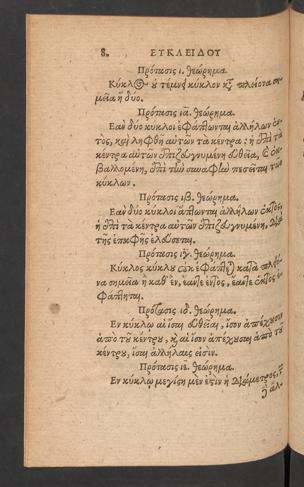 8. ΕΥΚΛΕΙΔΟΥ
Πρότασις ι. θεώρημα.
Κύκλος οὐ τέμνει κύκλον κτ̃ πλείονα ση-
μεῖα ἢ δύο.
Πρότασις ια. θεώρημα.
Εὰν δύο κύκλοι ἐφάπτωνται ἀλλήλων ἐκ-
τὸς, καὶ ληφθῇ αὐτῶν τὰ κέντρα: ἡ ἐπὶ τὰ
κέντρα αὐτῶν ἐπιζευγνυμένη εὐθεῖα, καὶ ἐκ-
βαλλομένη, ἐπὶ τὴν συναφὴν πεσεῖται τῶν
κύκλων.
Πρότασις ιβ. θεώρημα.
Εὰν δύο κύκλοι ἅπτωνται ἀλλήλων ἐκτὸς,
ἡ ἐπὶ τὰ κέντρα αὐτῶν ἐπιζευγνυμένη, διὰ
τῆς ἐπαφῆς ἐλεύσεται.
Πρότασις ιγ. θεώρημα.
Κύκλος κύκλου οὐκ ἐφάπτεται κατὰ πλείο-
να σημεῖα ἢ καθ' ἓν, ἐάντε ἐντὸς, ἐάντε ἐκτὸς
ἐφάπτηται.
Πρότασις ιδ. θεώρημα.
Εν κύκλῳ αἱ ἴσαι εὐθεῖαι, ἴσον ἀπέχουσιν
ἀπὸ τοῦ κέντρου, καὶ αἱ ἴσον ἀπέχουσαι ἀπὸ τοῦ
κέντρου, ἴσαι ἀλλήλαις εἰσίν.
Πρότασις ιε. θεώρημα.
Εν κύκλῳ μεγίστη μέν ἐστιν ἡ διάμετρος,
ἀλ-